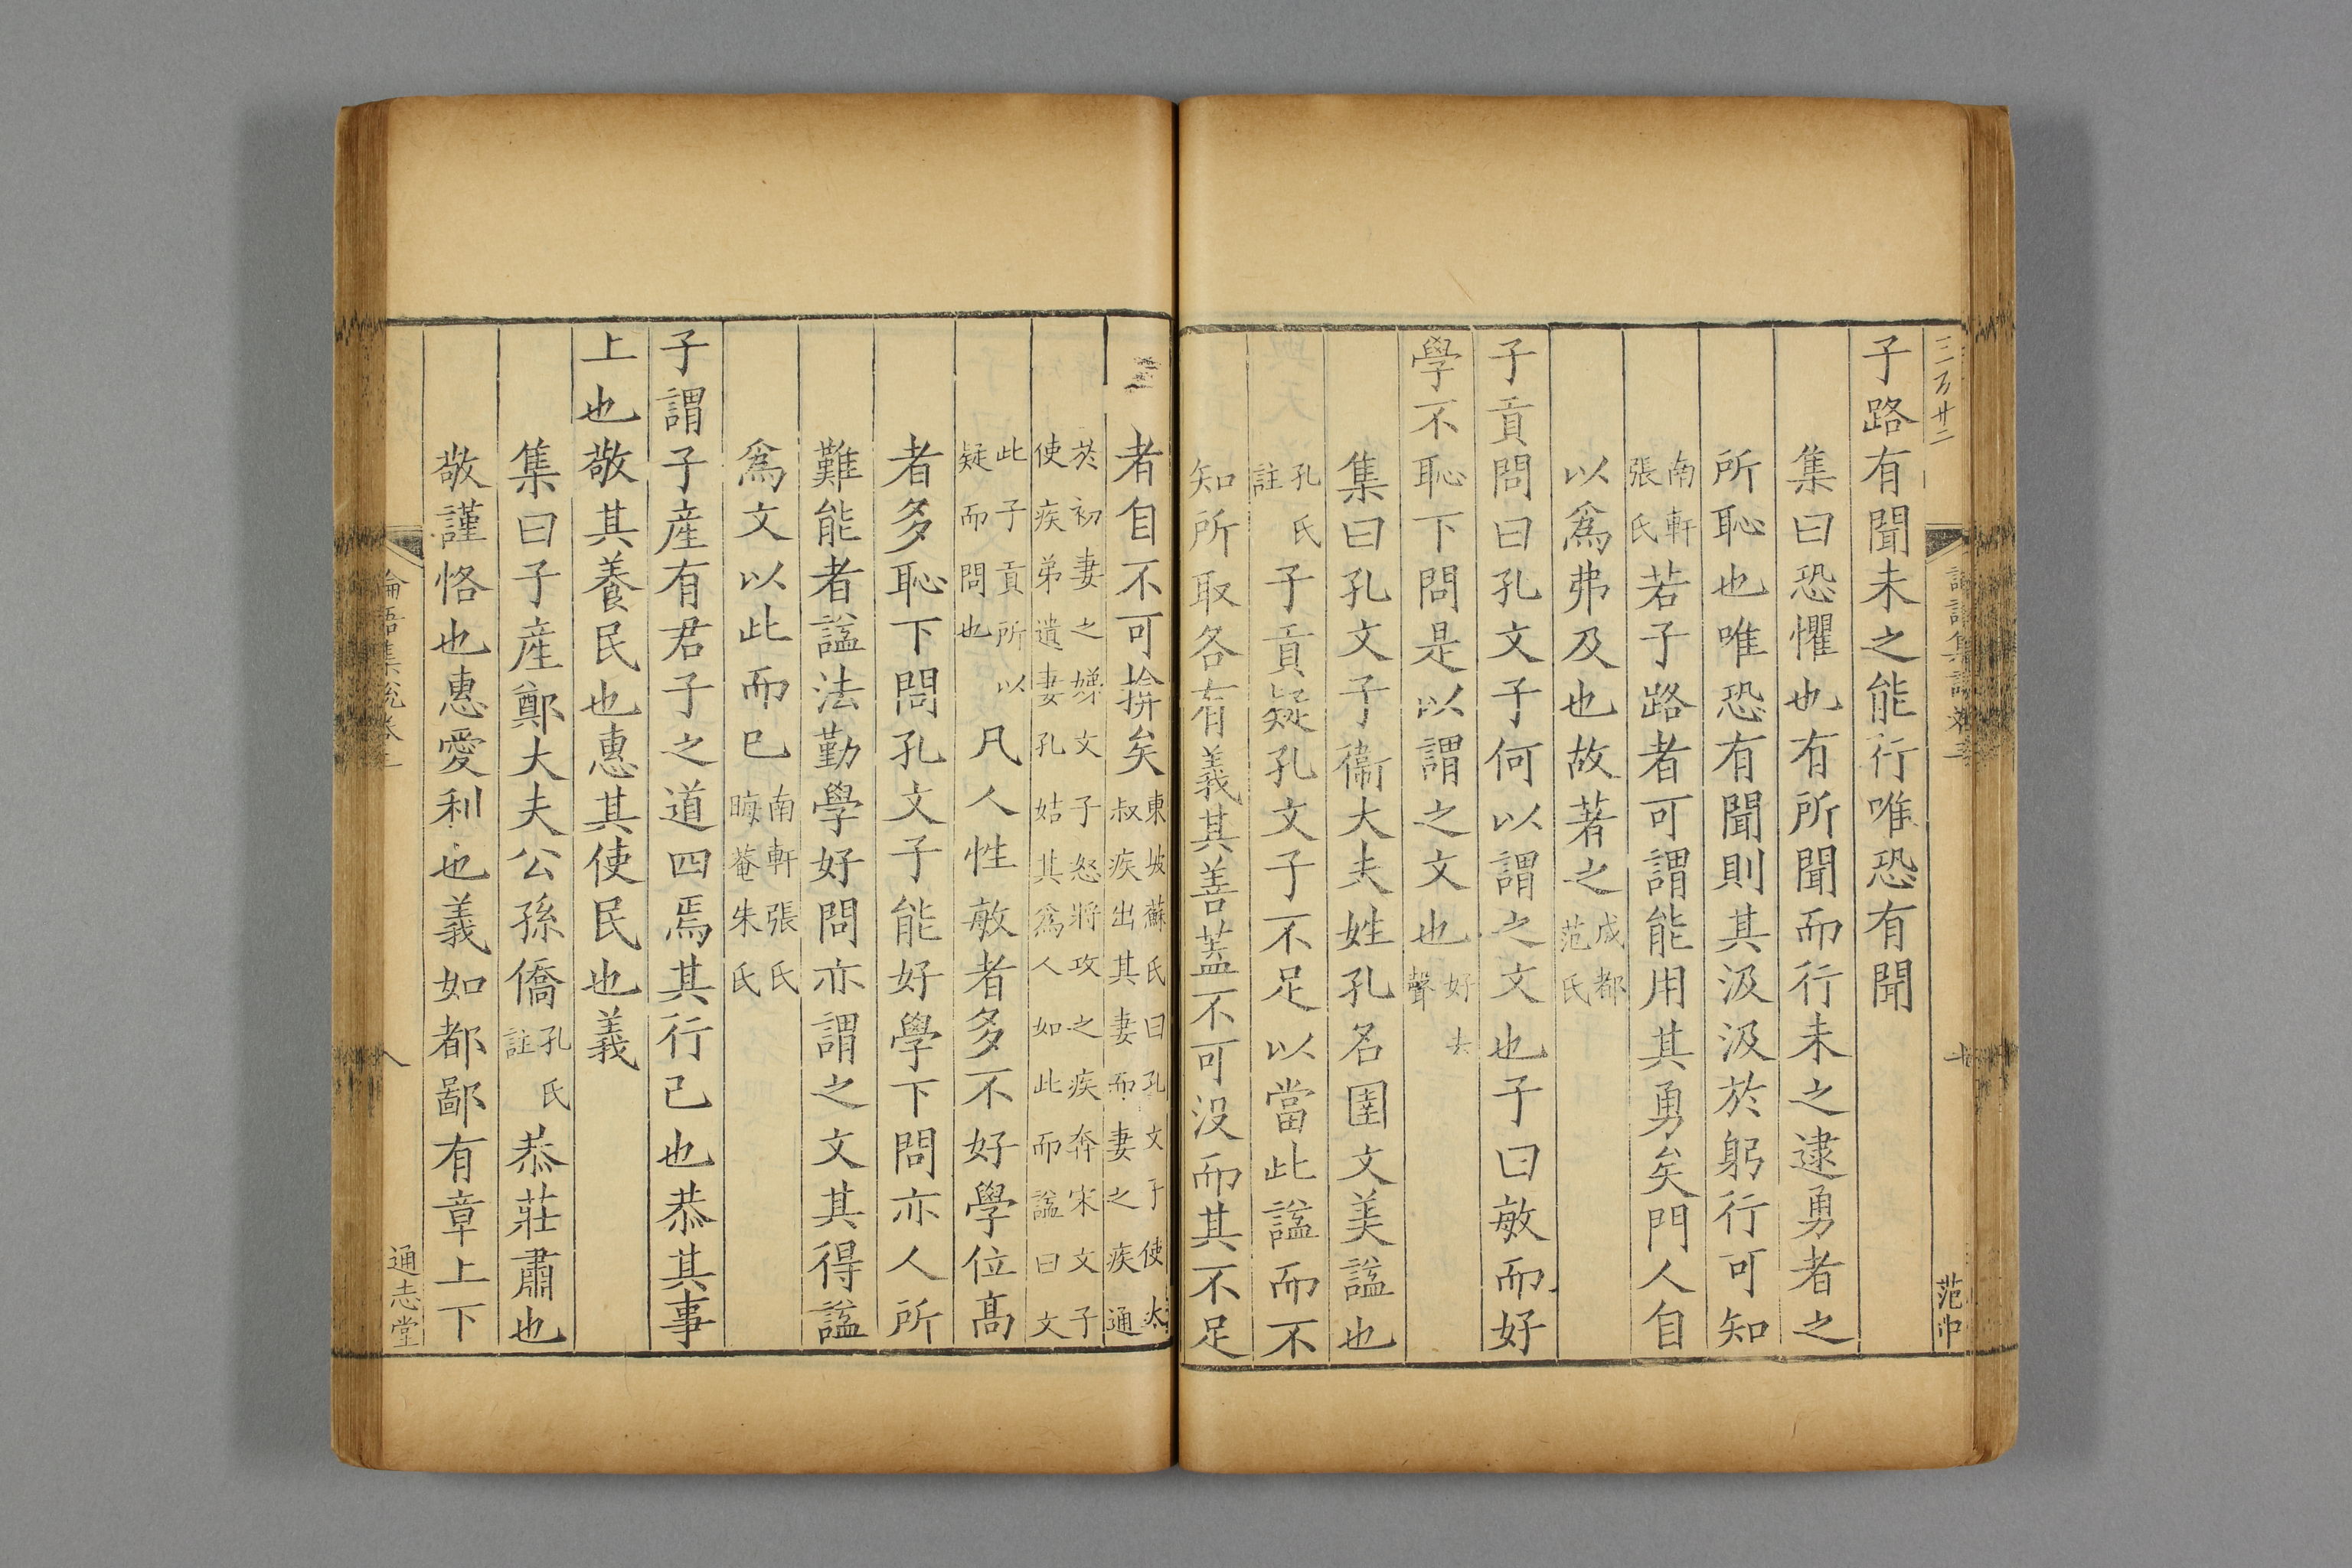 子路有聞未之能行唯恐有聞
集曰恐懼也有所聞而行未之逮勇者之
所恥也唯恐有聞則其汲汲於躬行可知
南軒張氏若子路者可謂能用其勇矣門人自
以爲弗及也故著之成都范氏
子貢問曰孔文子何以謂之文也子曰敏而好
學不恥下問是以謂之文也好去聲
集曰孔文子衞大夫姓孔名圉文美諡也
孔氏註子貢疑孔文子不足以當此諡而不
知所取各有義其善蓋不可没而其不足
者自不可揜矣東坡蘇氏曰孔文子使太叔疾出其妻而妻之疾通
於初妻之娣文子怒將攻之疾奔宋文子使疾弟遺妻孔姞其爲人如此而諡曰文
此子貢所以疑而問也凡人性敏者多不好學位高
者多恥下問孔文子能好學下問亦人所
難能者諡法勤學好問亦謂之文其得諡
爲文以此而已南軒張氏晦菴朱氏
子謂子産有君子之道四焉其行己也恭其事
上也敬其養民也惠其使民也義
集曰子産鄭大夫公孫僑孔氏註恭莊肅也
敬謹恪也惠愛利也義如都鄙有章上下
三百廿二
范中
論語集說卷三
八
通志堂